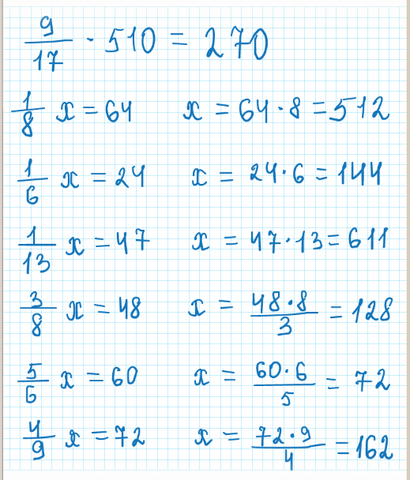 9/17 · 510 = 270
1/8 x = 64 x = 64 · 8 = 512
1/6 x = 24 x = 24 · 6 = 144
1/13 x = 47 x = 47 · 13 = 611
3/8 x = 48 x = 48 · 8/3 = 128
5/6 x = 60 x = 60 · 6/5 = 72
4/9 x = 72 x = 72 · 9/4 = 162